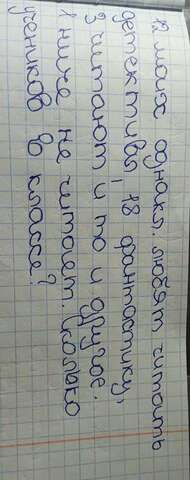 12 моих однокл. любят читать
детективы, 18 фантастику,
3 читают и то и другое.
1 ниче не читает. Сколько
учеников во классе?